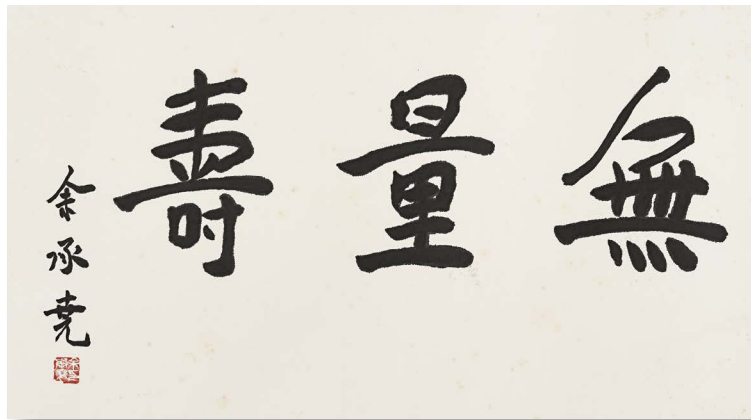 無量壽
余承堯